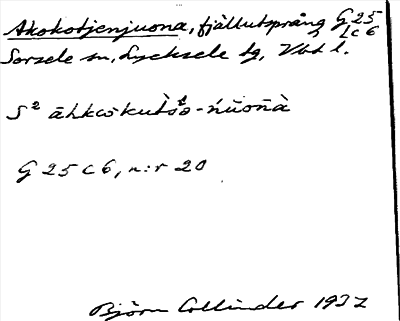 Akokotjenjuona, fjällutsprång G 25 c 6
Sorsele sn, Lycksele lg, Vbt l.
S² āhkɷ̄kutsͤo-ńūōńà
G 25 c 6, n:r 20
Björn Collinder 1937